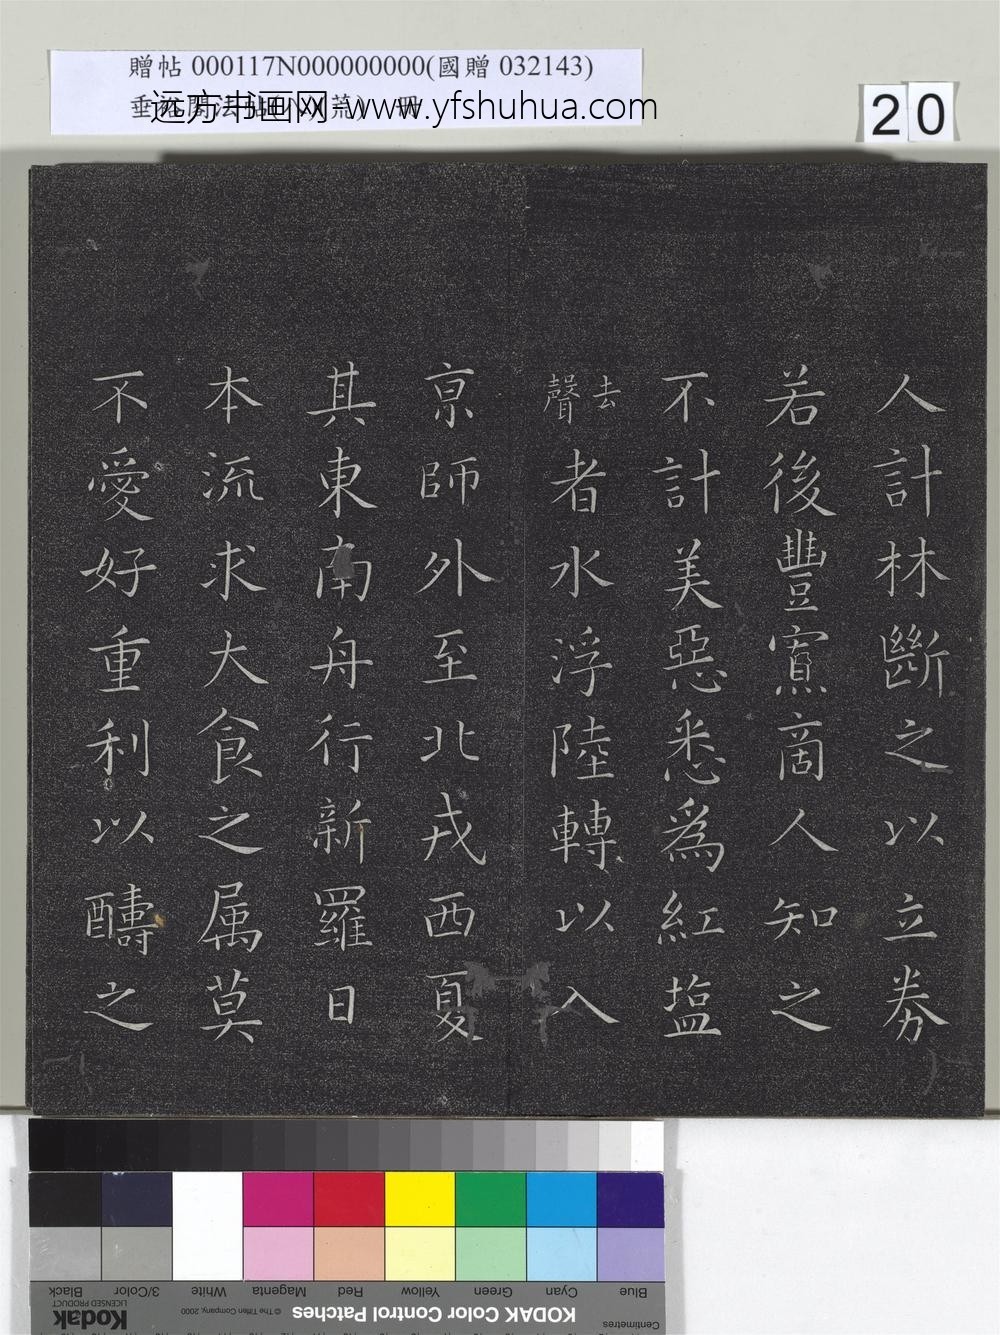 贈帖 000117N000000000(國贈 032143)
远方书画网-www.yfshuhua.com
20
人計林斷之以立券
若後豐寡商人知之
不計美惡悉為紅塩
去聲者水浮陸轉以入
京師外至北戎西夏
其東南舟行新羅日
本流求大食之属莫
不愛好重利以醻之
Black
3/Color
White
Magenta
Red
Yellow
Green
Cyan
Blue
Kodak
LICENSED PRODUCT
© The Tiffen Company, 2000
KODAK Color Control Patches
Centimetres